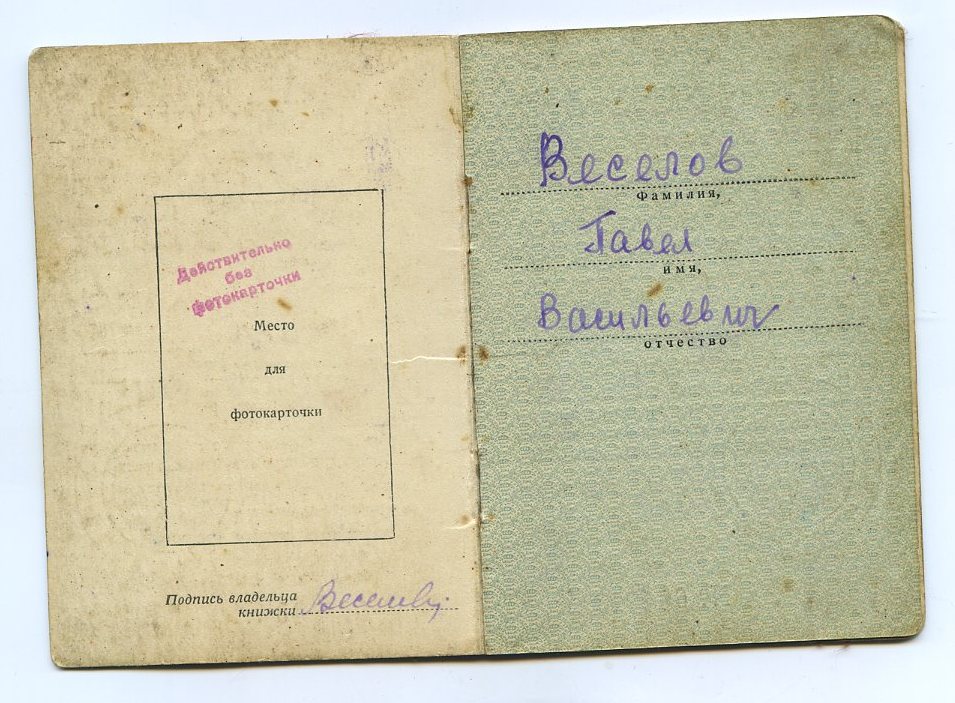 Действительно
без
фотокарточки
Место
для
фотокарточки
Подпись владельца
книжки
Веселов
Фамилия,
Павел
имя,
Васильевич
отчество